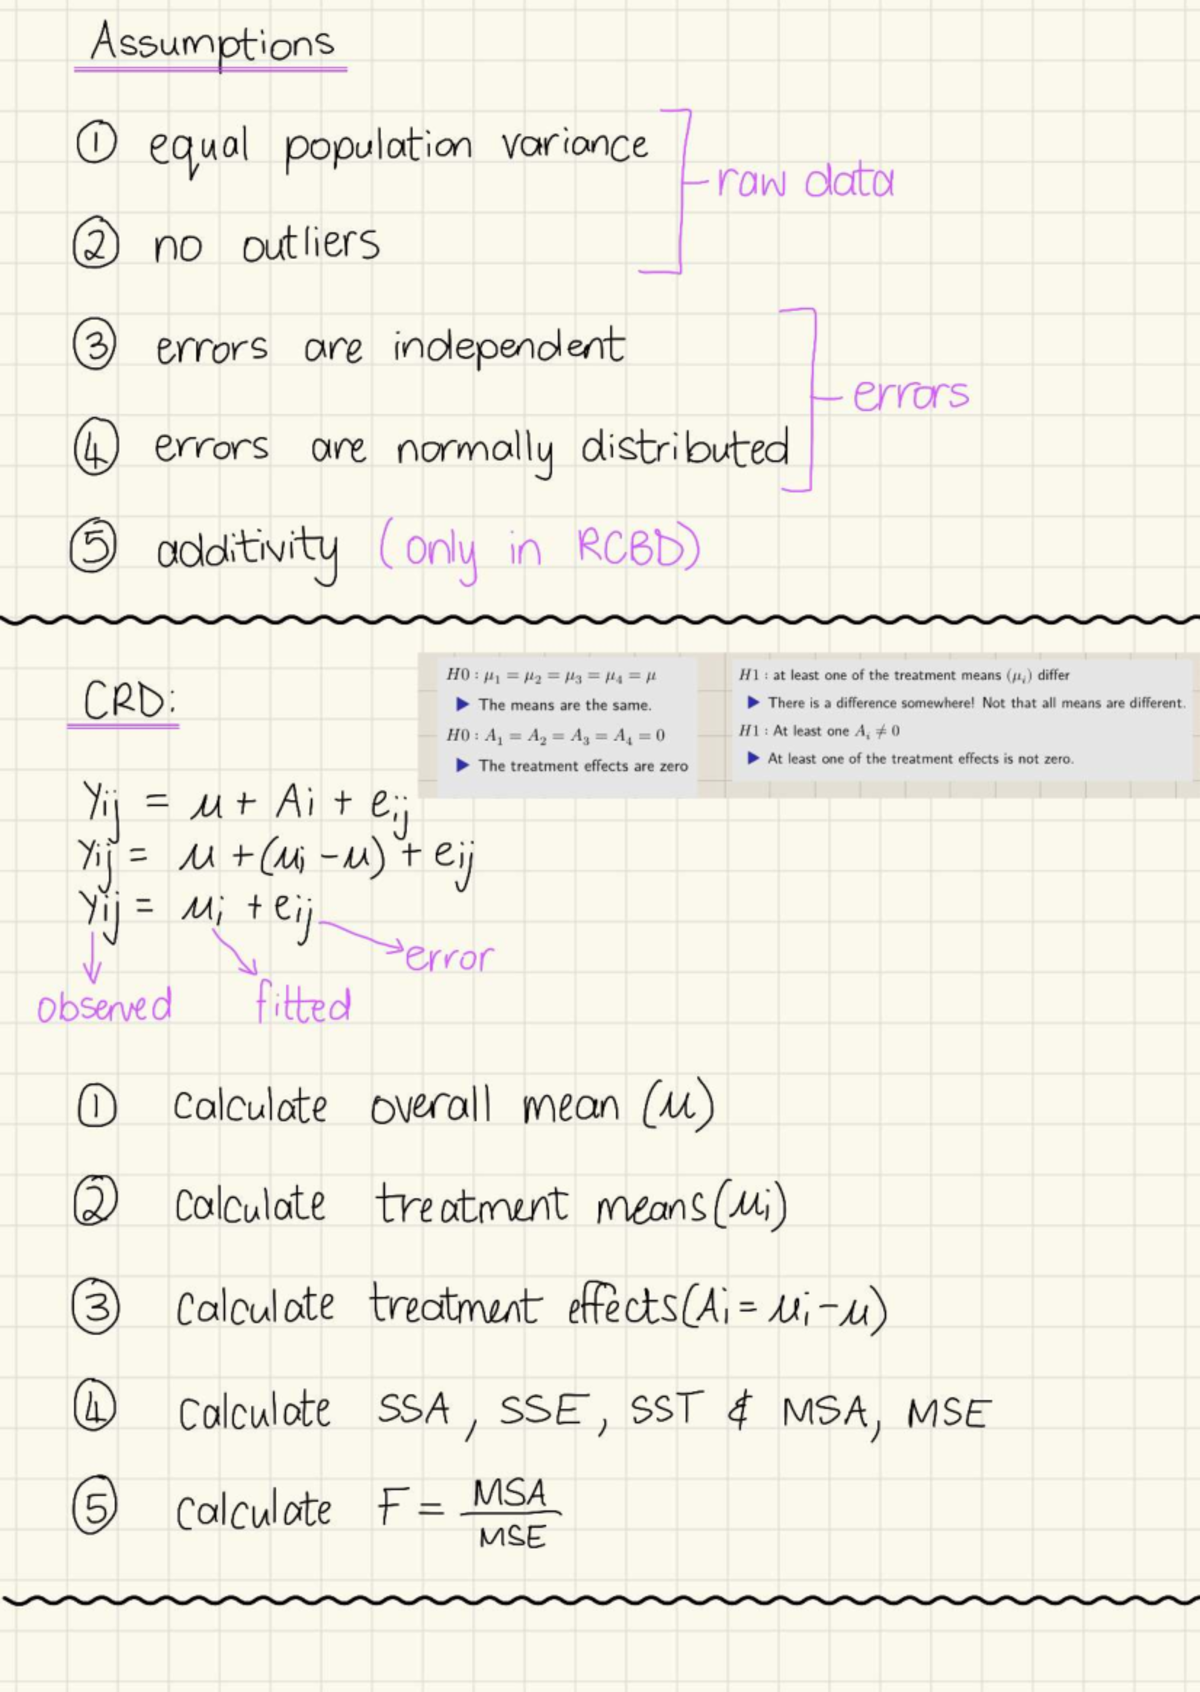 Assumptions
① equal population variance
raw data
② no outliers
③ errors are independent
errors
④ errors are normally distributed
⑤ additivity (only in RCBD)
CRD:
H0 : μ₁ = μ₂ = μ₃ = μ₄ = μ
▶ The means are the same.
H0 : A₁ = A₂ = A₃ = A₄ = 0
▶ The treatment effects are zero
H1 : at least one of the treatment means (μᵢ) differ
▶ There is a difference somewhere! Not that all means are different.
H1 : At least one Aᵢ ≠ 0
▶ At least one of the treatment effects is not zero.
Yij = μ + Ai + eij
Yij = μ + (μi - μ) + eij
Yij = μi + eij
error
observed
fitted
① calculate overall mean (μ)
② calculate treatment means (μi)
③ calculate treatment effects (Ai = μi - μ)
④ calculate SSA, SSE, SST & MSA, MSE
⑤ calculate F = MSA
MSE